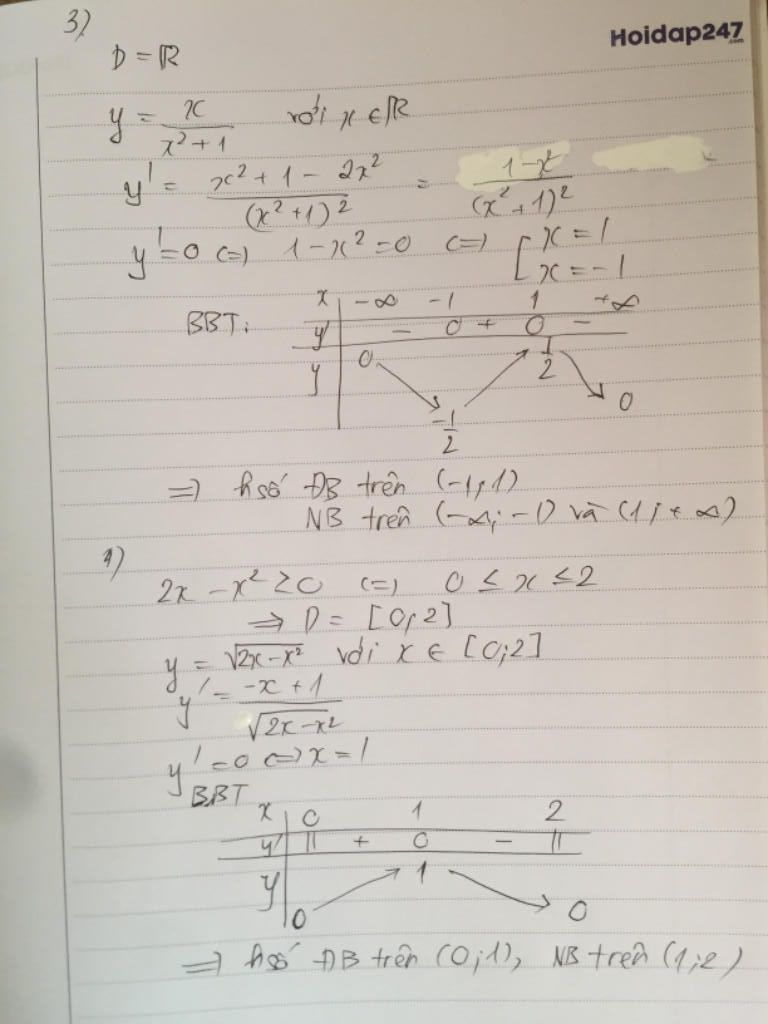 3)
Hoidap247.com
D = ℝ
y = x/(x² + 1) với x ∈ ℝ
y' = (x² + 1 - 2x²)/(x² + 1)² = (1 - x²)/(x² + 1)²
y' = 0 (=) 1 - x² = 0 (=) [x = 1
[x = -1
BBT:
x | -∞ -1 1 +∞
y' | - 0 + 0 -
y | 0 -1/2 1/2 0
=> h số ĐB trên (-1; 1)
NB trên (-∞; -1) và (1; +∞)
1)
2x - x² ≥ 0 (=) 0 ≤ x ≤ 2
=> D = [0; 2]
y = √(2x - x²) với x ∈ [0; 2]
y' = (-x + 1)/√(2x - x²)
y' = 0 (=) x = 1
BBT
x | 0 1 2
y' | || + 0 - ||
y | 0 1 0
=> h số ĐB trên (0; 1), NB trên (1; 2)